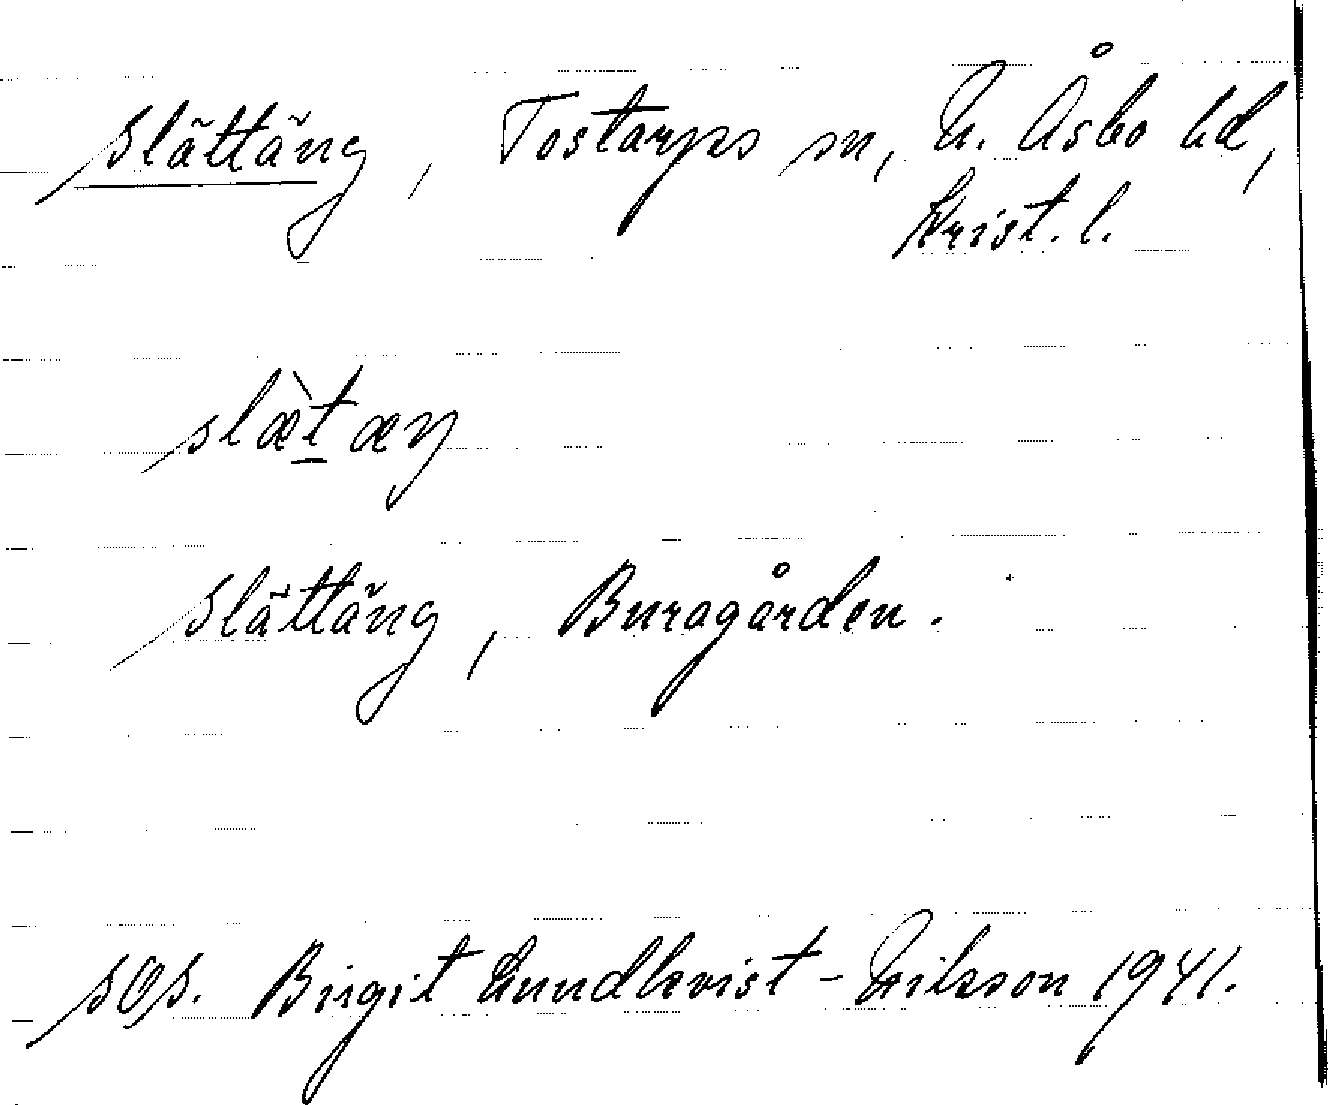 Slättäng, Tostarps sn, N. Åsbo hd,
Krist. l.
slæ̀t æŋ
Slättäng, Buragården.
sgs. Birgit Lundkvist-Nilsson 1941.